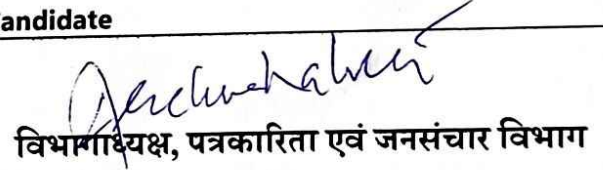 andidate
विभागाध्यक्ष, पत्रकारिता एवं जनसंचार विभाग